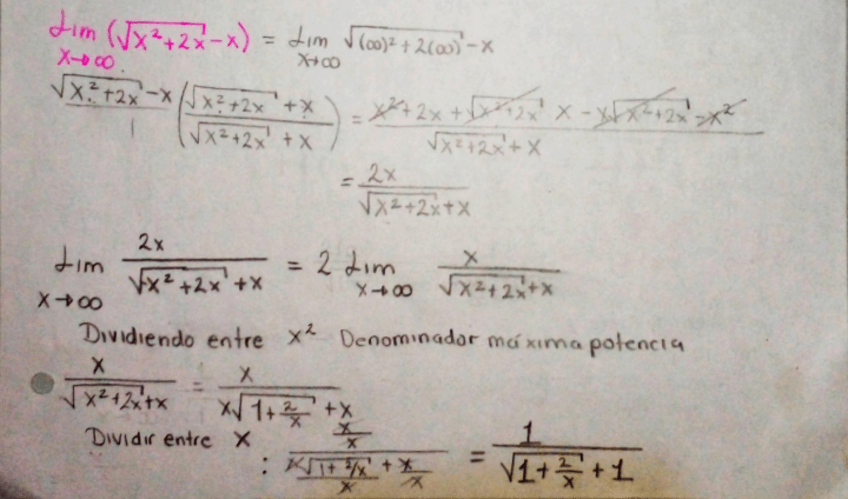 Lim (√x²+2x - x) = Lim √(∞)²+2(∞) - x
x→∞ x→∞
√x²+2x - x / 1 (√x²+2x + x / √x²+2x + x) = x²+2x+√x²+2x x - x√x²+2x - x² / √x²+2x + x
= 2x / √x²+2x + x
Lim 2x / √x²+2x + x = 2 Lim x / √x²+2x + x
x→∞ x→∞
Dividiendo entre x² Denominador máxima potencia
x / √x²+2x + x = x / x√1+2/x + x
Dividir entre x : x/x / x√1+2/x / x + x/x = 1 / √1+2/x + 1